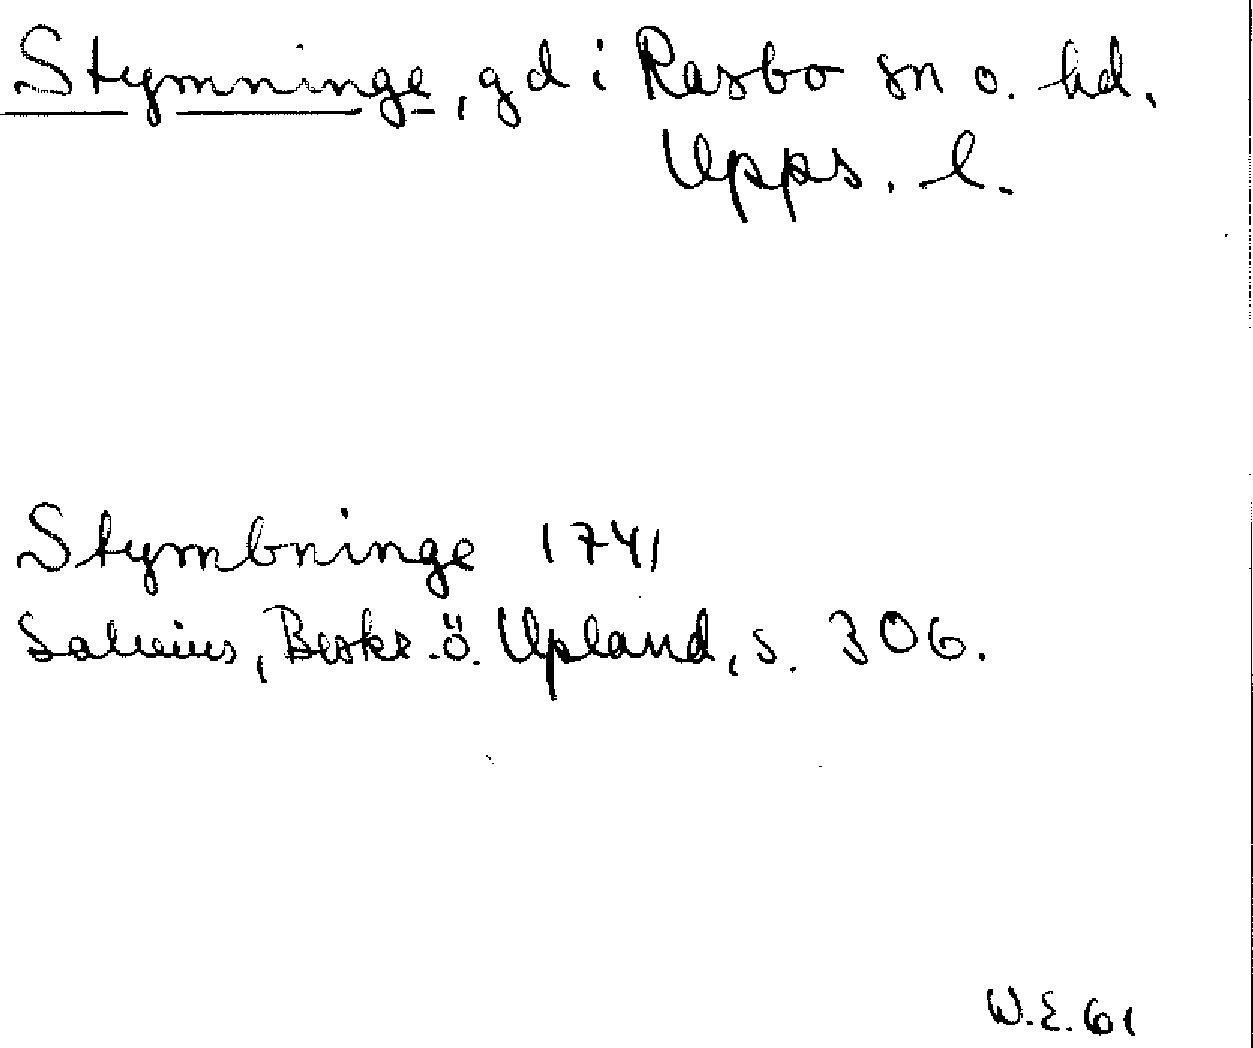 Stymninge, gd i Rasbo sn o. hd.
Upps. l.
Stymbninge 1741
Salvius, Beskr. ö. Upland, s. 306.
W.E. 61